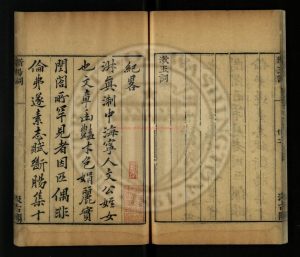 漱玉詞
紀畧
淑真浙中海寧人文公姪女
也文章幽豔才色娟麗實
閨閣所罕見者因匹偶非
倫弗遂素志賦斷腸集十
斷腸詞
汲古閣
漱玉詞
汲古閣